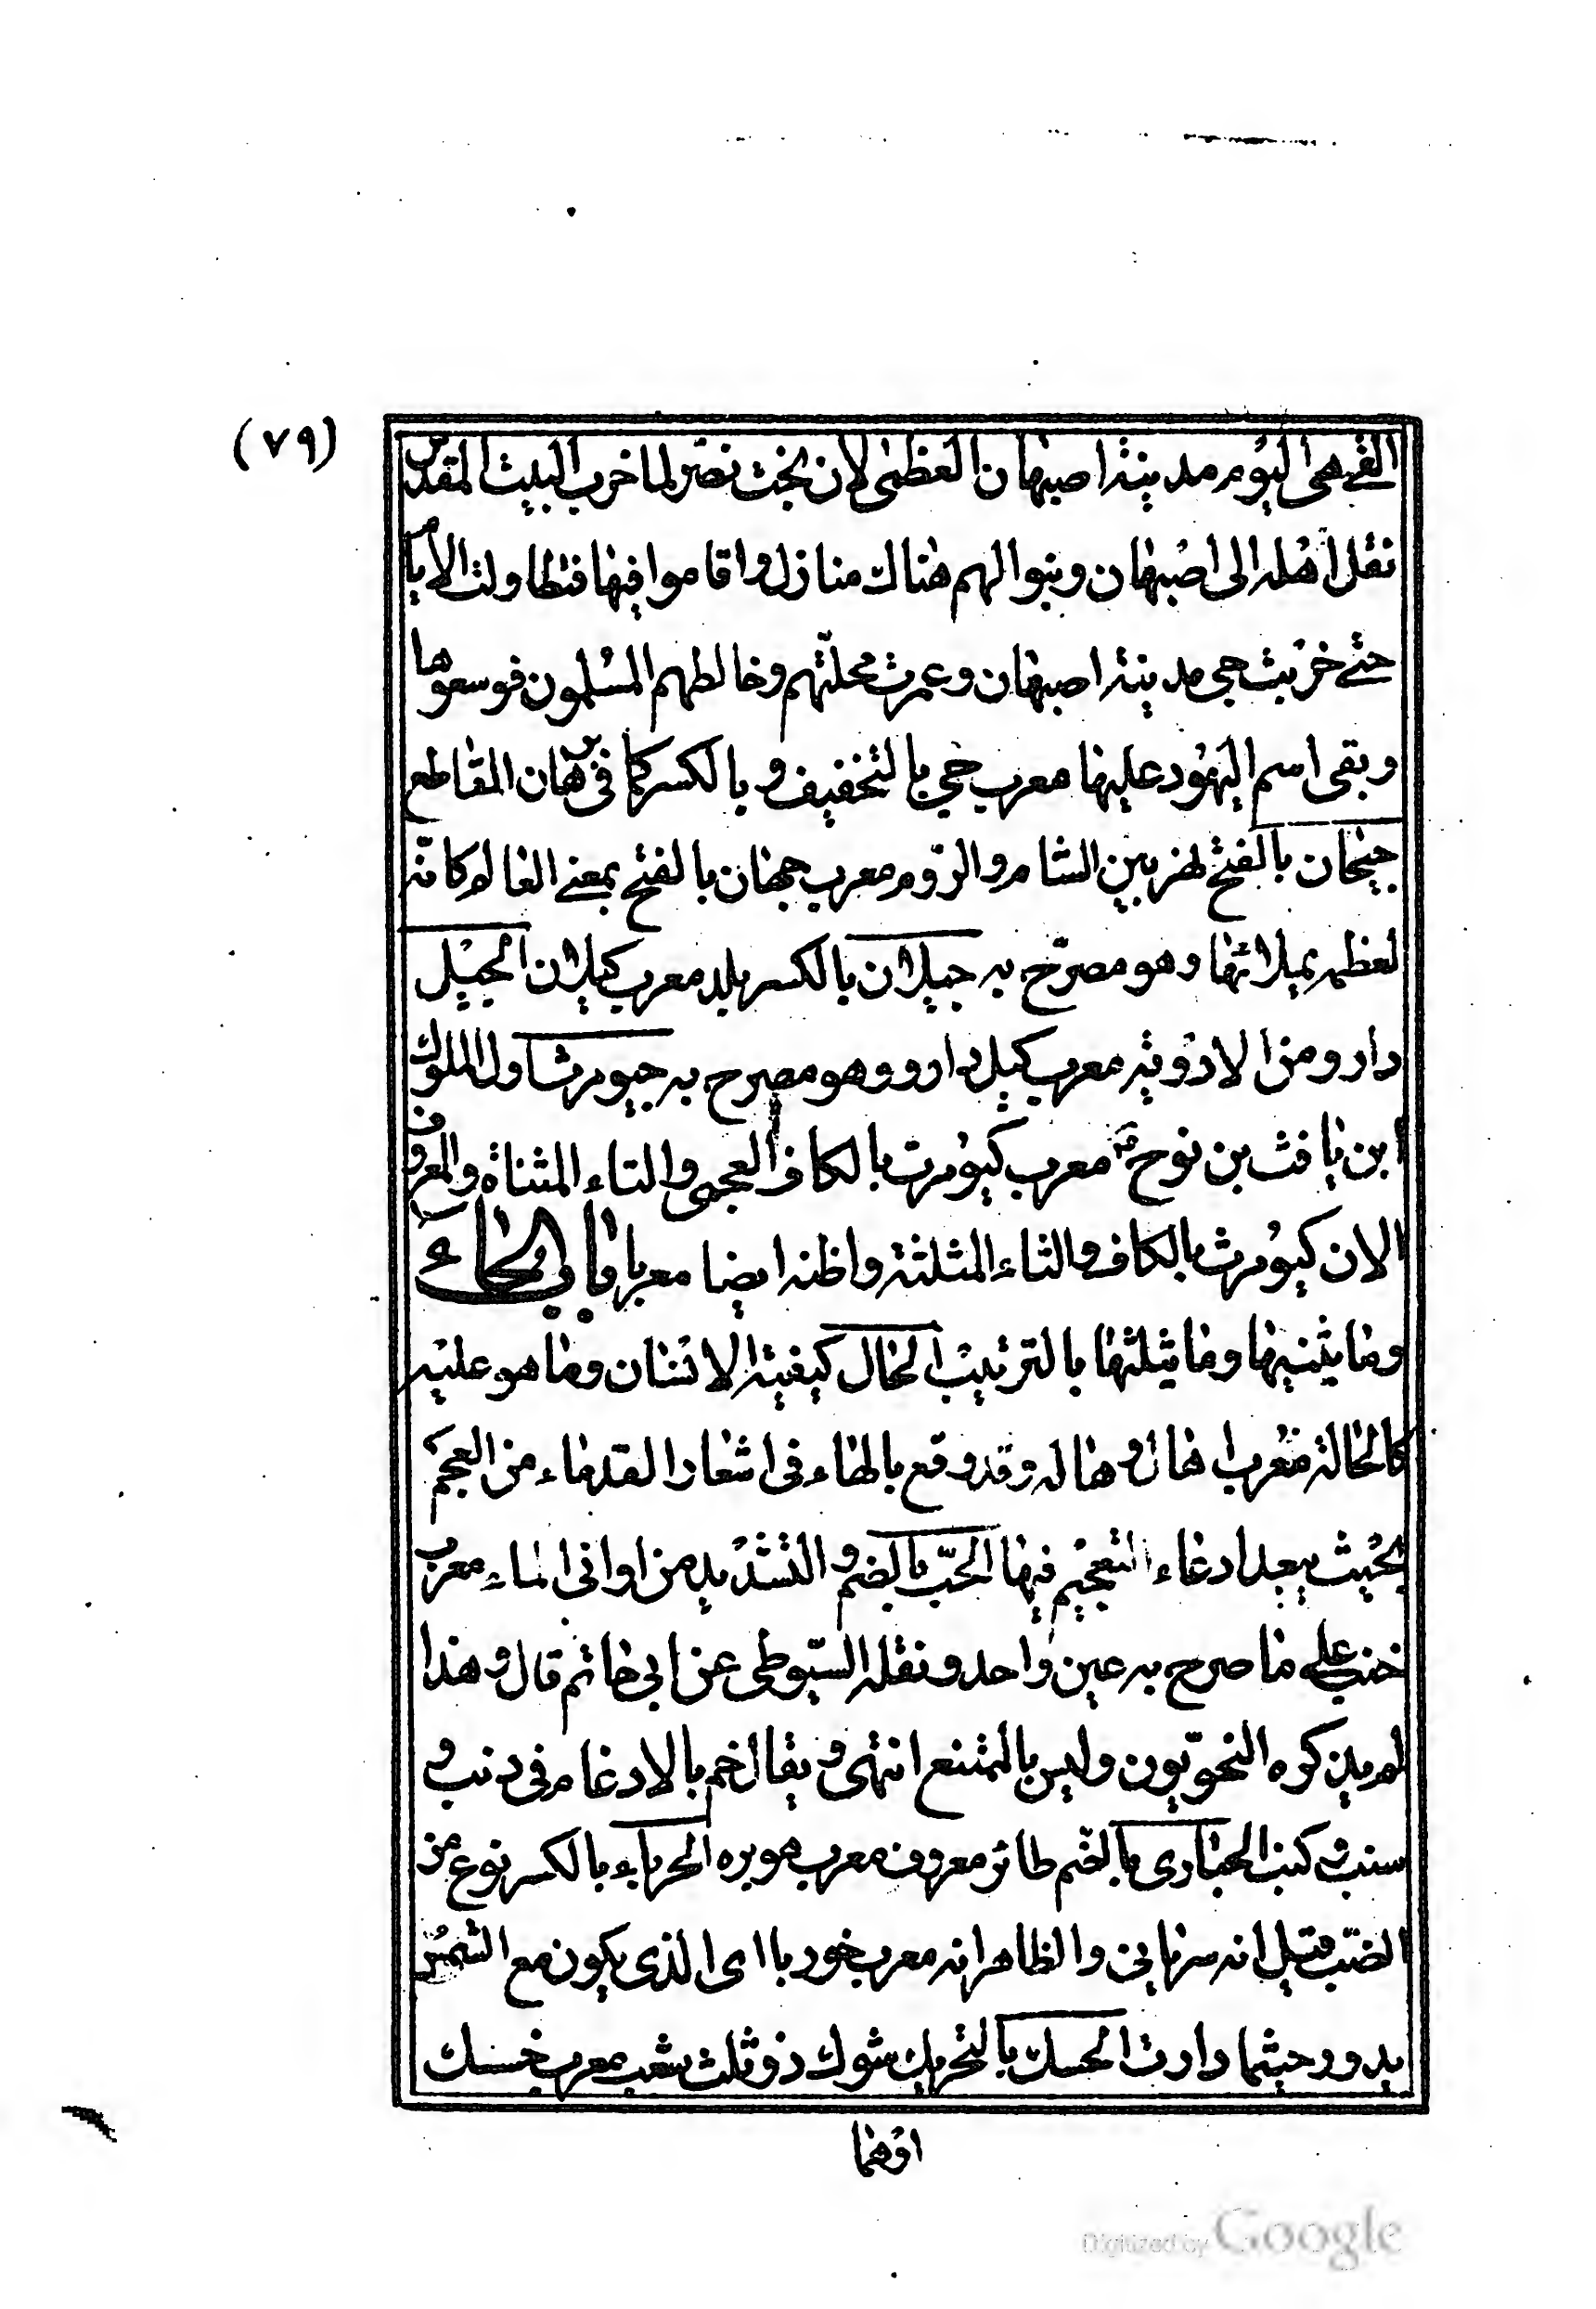 (٧٩)
التي هي اليوم مدينة اصبهان العظمى لان بخت نصر لما خرب البيت المقدس
نقل اهله الى اصبهان وبنوا لهم هناك منازل واقاموا فيها فتطاولت الأيام
حتى خربت جى مدينة اصبهان وعمرت محلّتهم وخالطهم المسلمون فوسعوها
وبقى اسم اليهود عليها معرب خي بالتخفيف و بالكسر كما في برهان القاطع
جيحان بالفتح نهر بين الشام والرّوم معرب جهان بالفتح بمعنى العالم كانّه
لعظمه يملائها وهو مصرّح به جيلان بالكسر بلد معرب كيلان الجيل
دارو من الادوية معرب كيل دارو وهو مصرح به جيومرث اول الملوك
ابن يافث بن نوح ع معرب كيومرت بالكاف العجمى والتاء المثناة والمعروف
الان كيومرث بالكاف والثاء المثلثة واظنه ايضا معربا باب الحاء
وما يثنيها وما يثلثها بالترتيب الحال كيفية الانسان وما هو عليه
كالحالة معرب هال وهاله وقد وقع بالهاء فى اشعار القدماء من العجم
بحيث يبعد ادعاء التعجيم فيها الحبّ بالضم والتشديد من اوانى الماء معرب
خنب على ما صرح به عين واحد ونقله السيّوطى عن ابي حاتم قال وهذا
لم يذكره النحويّون وليس بالممتنع انتهى ويقال خم بالادغام فى دنب و
سنب وكنب الحبارى بالضّم طائر معروف معرب هوبره الحرباء بالكسر نوع من
الضبّ قيل انه سريانى والظاهر انه معرب خوربا اى الذى يكون مع الشمس
يدور حيثما دارت الحسك بالتحريك شوك ذو ثلث شعب معرب خسك
اوهما
Digitized by Google